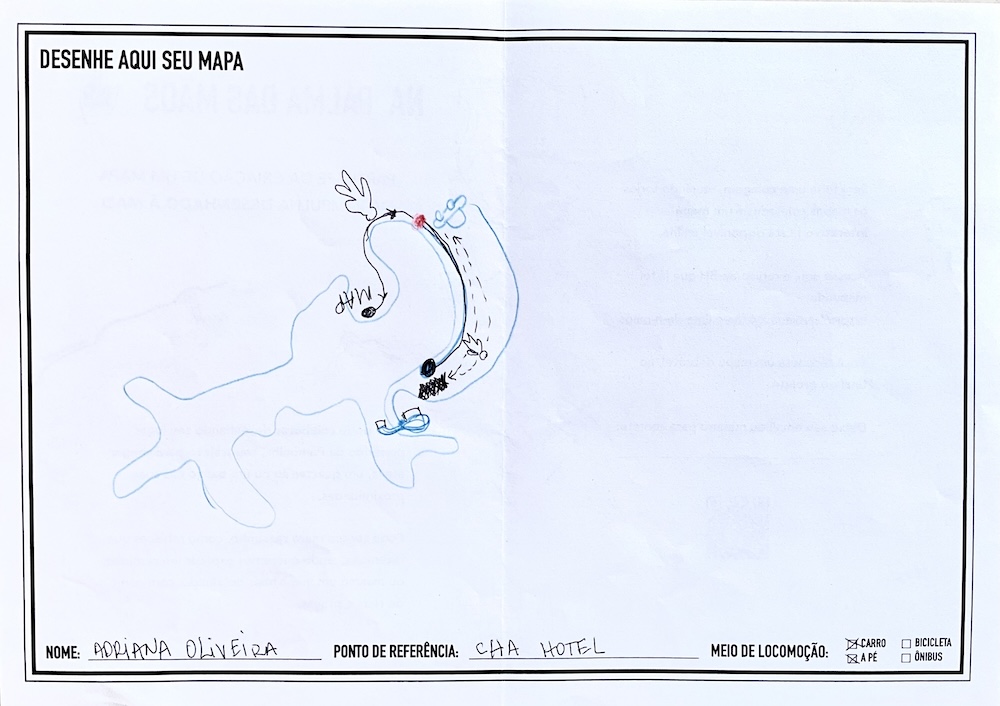 DESENHE AQUI SEU MAPA
MAP
NOME: ADRIANA OLIVEIRA PONTO DE REFERÊNCIA: CHA HOTEL MEIO DE LOCOMOÇÃO: CARRO BICICLETA
A PÉ ÔNIBUS